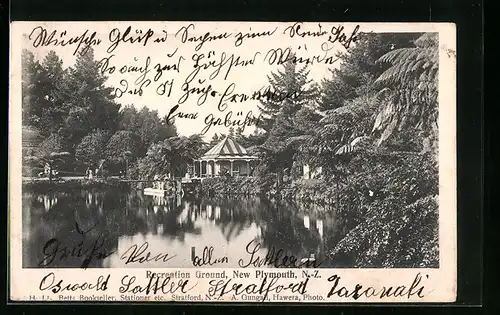 Wünsche Glück u Segen zum neuen Jahr
So auch die
das ist
Ehre
dem Gebührt
Grüße Von allen Sattlern
Recreation Ground, New Plymouth, N.-Z.
Oswald Sattler Stratford Taranaki
Betts Bookseller, Stationer etc. Stratford, N.-Z. A. Gungall, Hawera, Photo.